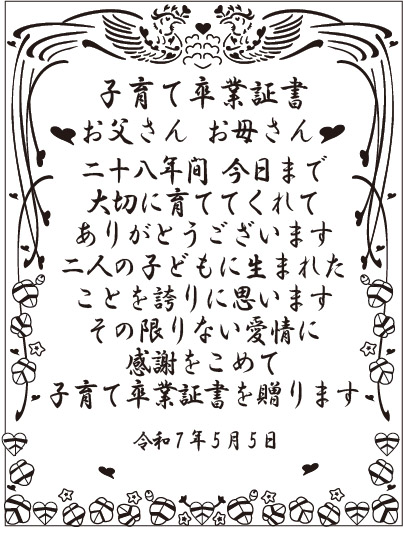 子育て卒業証書
お父さん お母さん
二十八年间 今日まで
大切に育ててくれて
ありがとうございます
二人の子どもに生まれた
ことを誇りに思います
その限りない愛情に
感謝をこめて
子育て卒業証書を贈ります
令和7年5月5日